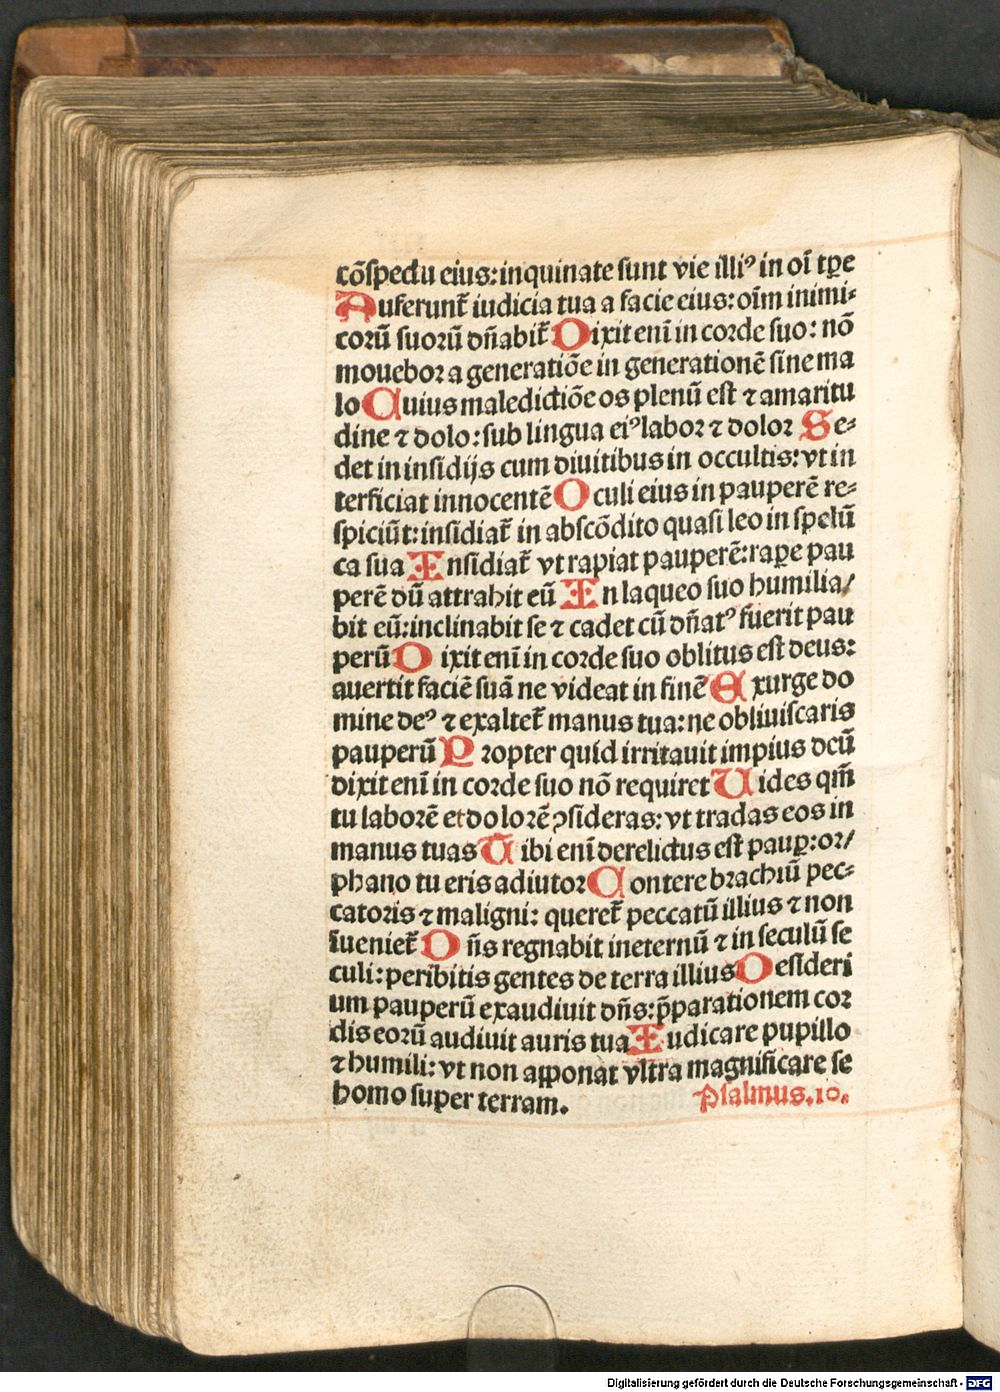 cōſpectu eius: inquinate ſunt vie illiꝰ in oī tꝑe
Auferunt᷑ iudicia tua a facie eius: oīm inimi⸗
corū ſuoꝝū dn̄abit᷑ Dixit enī in corde ſuo: nō
mouebor a generatiōe in generationē ſine ma
lo Cuius maledictiōe os plenū eſt ⁊ amaritu
dine ⁊ dolo: ſub lingua eiꝰ labor ⁊ dolor Se⸗
det in inſidijs cum diuitibus in occultis: vt in
terficiat innocentē Oculi eius in pauperē re⸗
ſpiciūt: inſidiat᷑ in abſcōdito quaſi leo in ſpelū
ca ſua Inſidiat᷑ vt rapiat pauperē: raꝑe pau
perē dū attrahit eū In laqueo ſuo humilia/
bit eū: inclinabit ſe ⁊ cadet cū dn̄atꝰ fuerit pau
perū Dixit enī in corde ſuo oblitus eſt deus:
auertit faciē ſuā ne videat in finē Exurge do
mine deꝰ ⁊ exaltet᷑ manus tua: ne obliuiſcaris
pauperū Propter quid irritauit impius deū
dixit enī in corde ſuo nō requiret Uides qm̄
tu laborē et dolorē ꝯſideras: vt tradas eos in
manus tuas Tibi enī derelictus eſt pauꝑ: or/
phano tu eris adiutor Contere brachiū pec⸗
catoris ⁊ maligni: queret᷑ peccatū illius ⁊ non
īueniet᷑ Dn̄s regnabit ineternū ⁊ in ſeculū ſe
culi: peribitis gentes de terra illius Deſideri
um pauperū exaudiuit dn̄s: p̄parationem cor
dis eorū audiuit auris tua Iudicare pupillo
⁊ humili: vt non apponat vltra magnificare ſe
homo ſuper terram. Pſalmus.10.
Digitalisierung gefördert durch die Deutsche Forschungsgemeinschaft - DFG